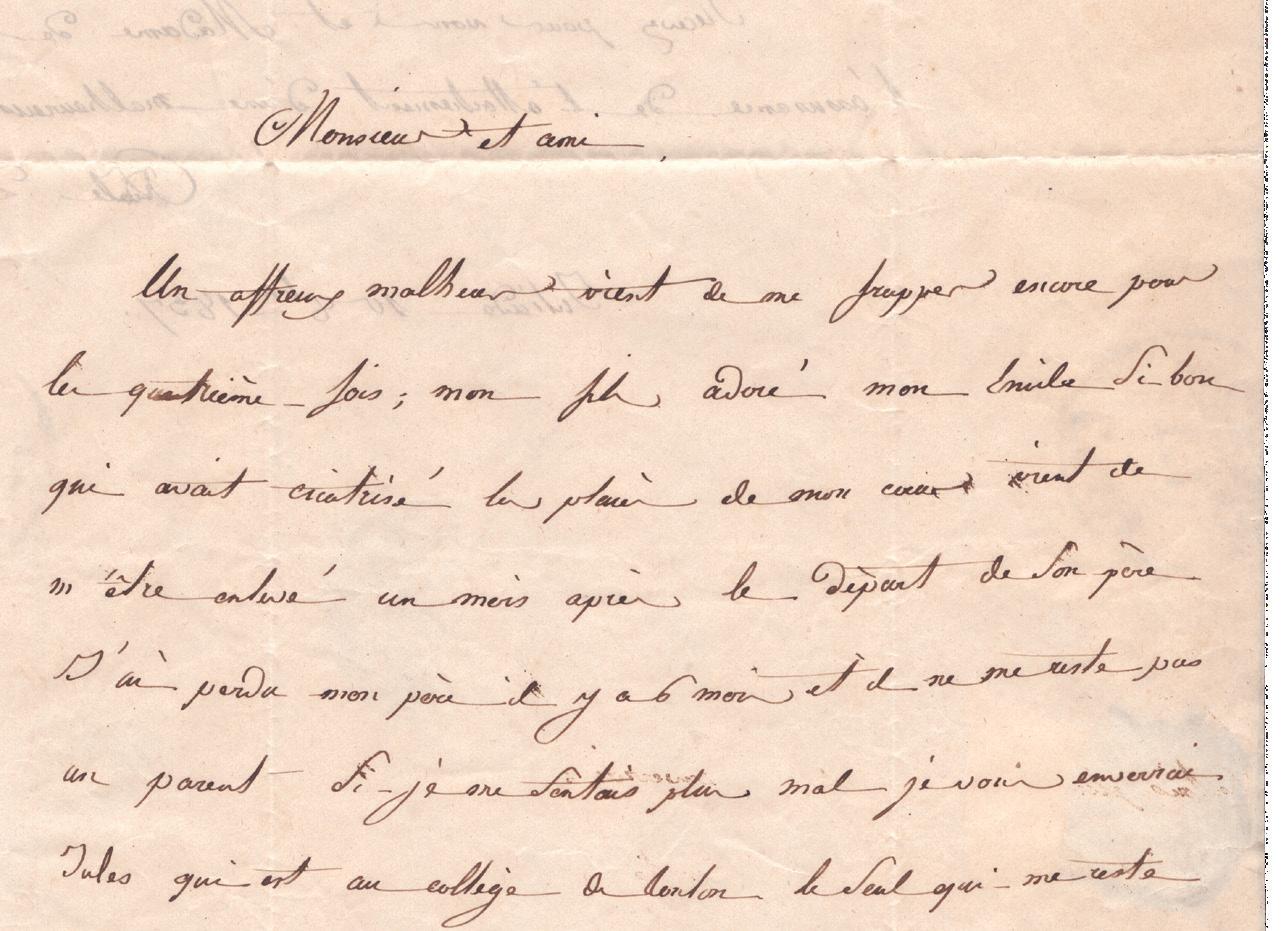 Monsieur et ami,
Un affreux malheur vient de me frapper encore pour
la quatrième fois ; mon fils adoré mon Emile Si bon
qui avait cicatrisé les plaies de mon cœur vient de
m'être enlevé un mois après le départ de Son père
J'ai perdu mon père il y a 6 mois et il ne me reste pas
un parent Si je me Sentais plus mal je vous enverrai
Jules qui est au collège de toulon le Seul qui me reste